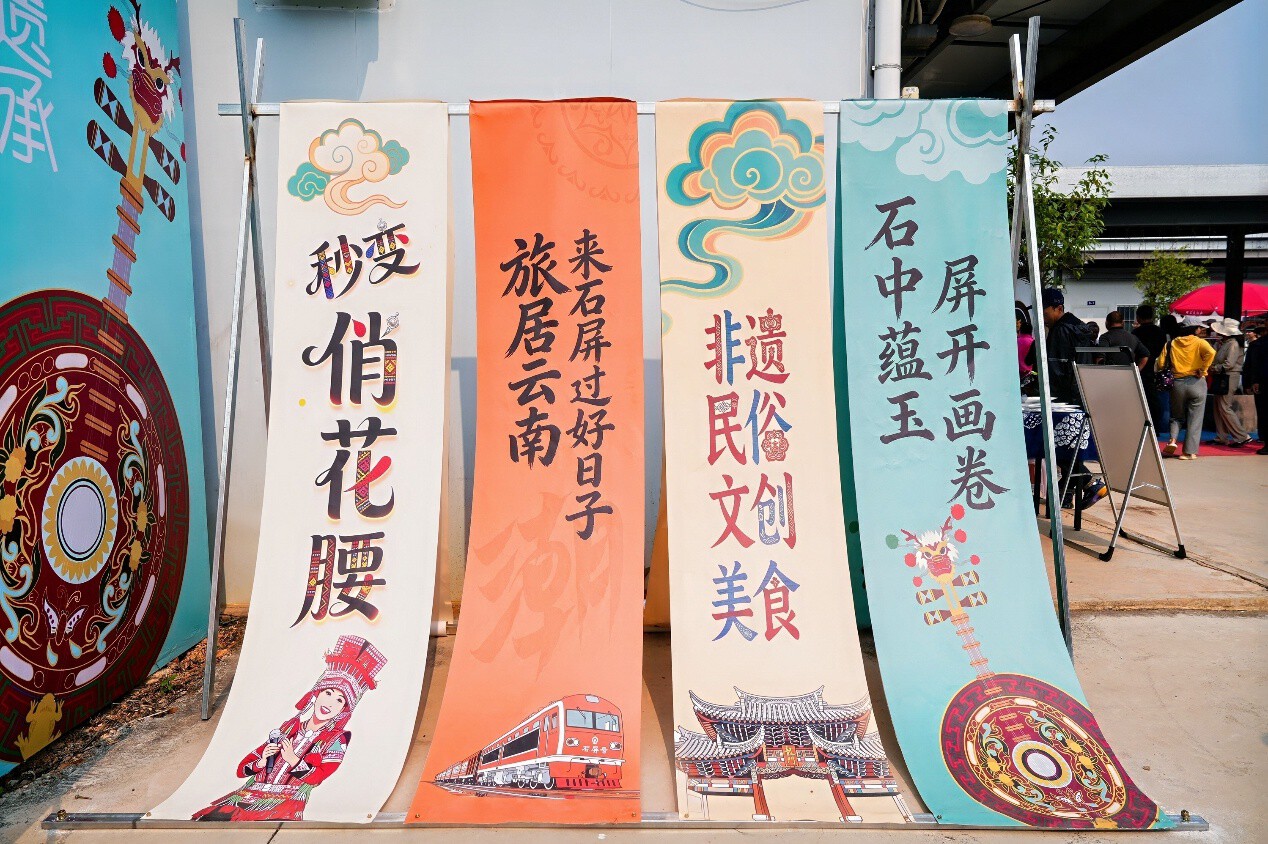 承
秒变
俏花腰
旅居云南
来石屏过好日子
潮
非遗
民俗
文创
美食
石中蕴玉
屏开画卷